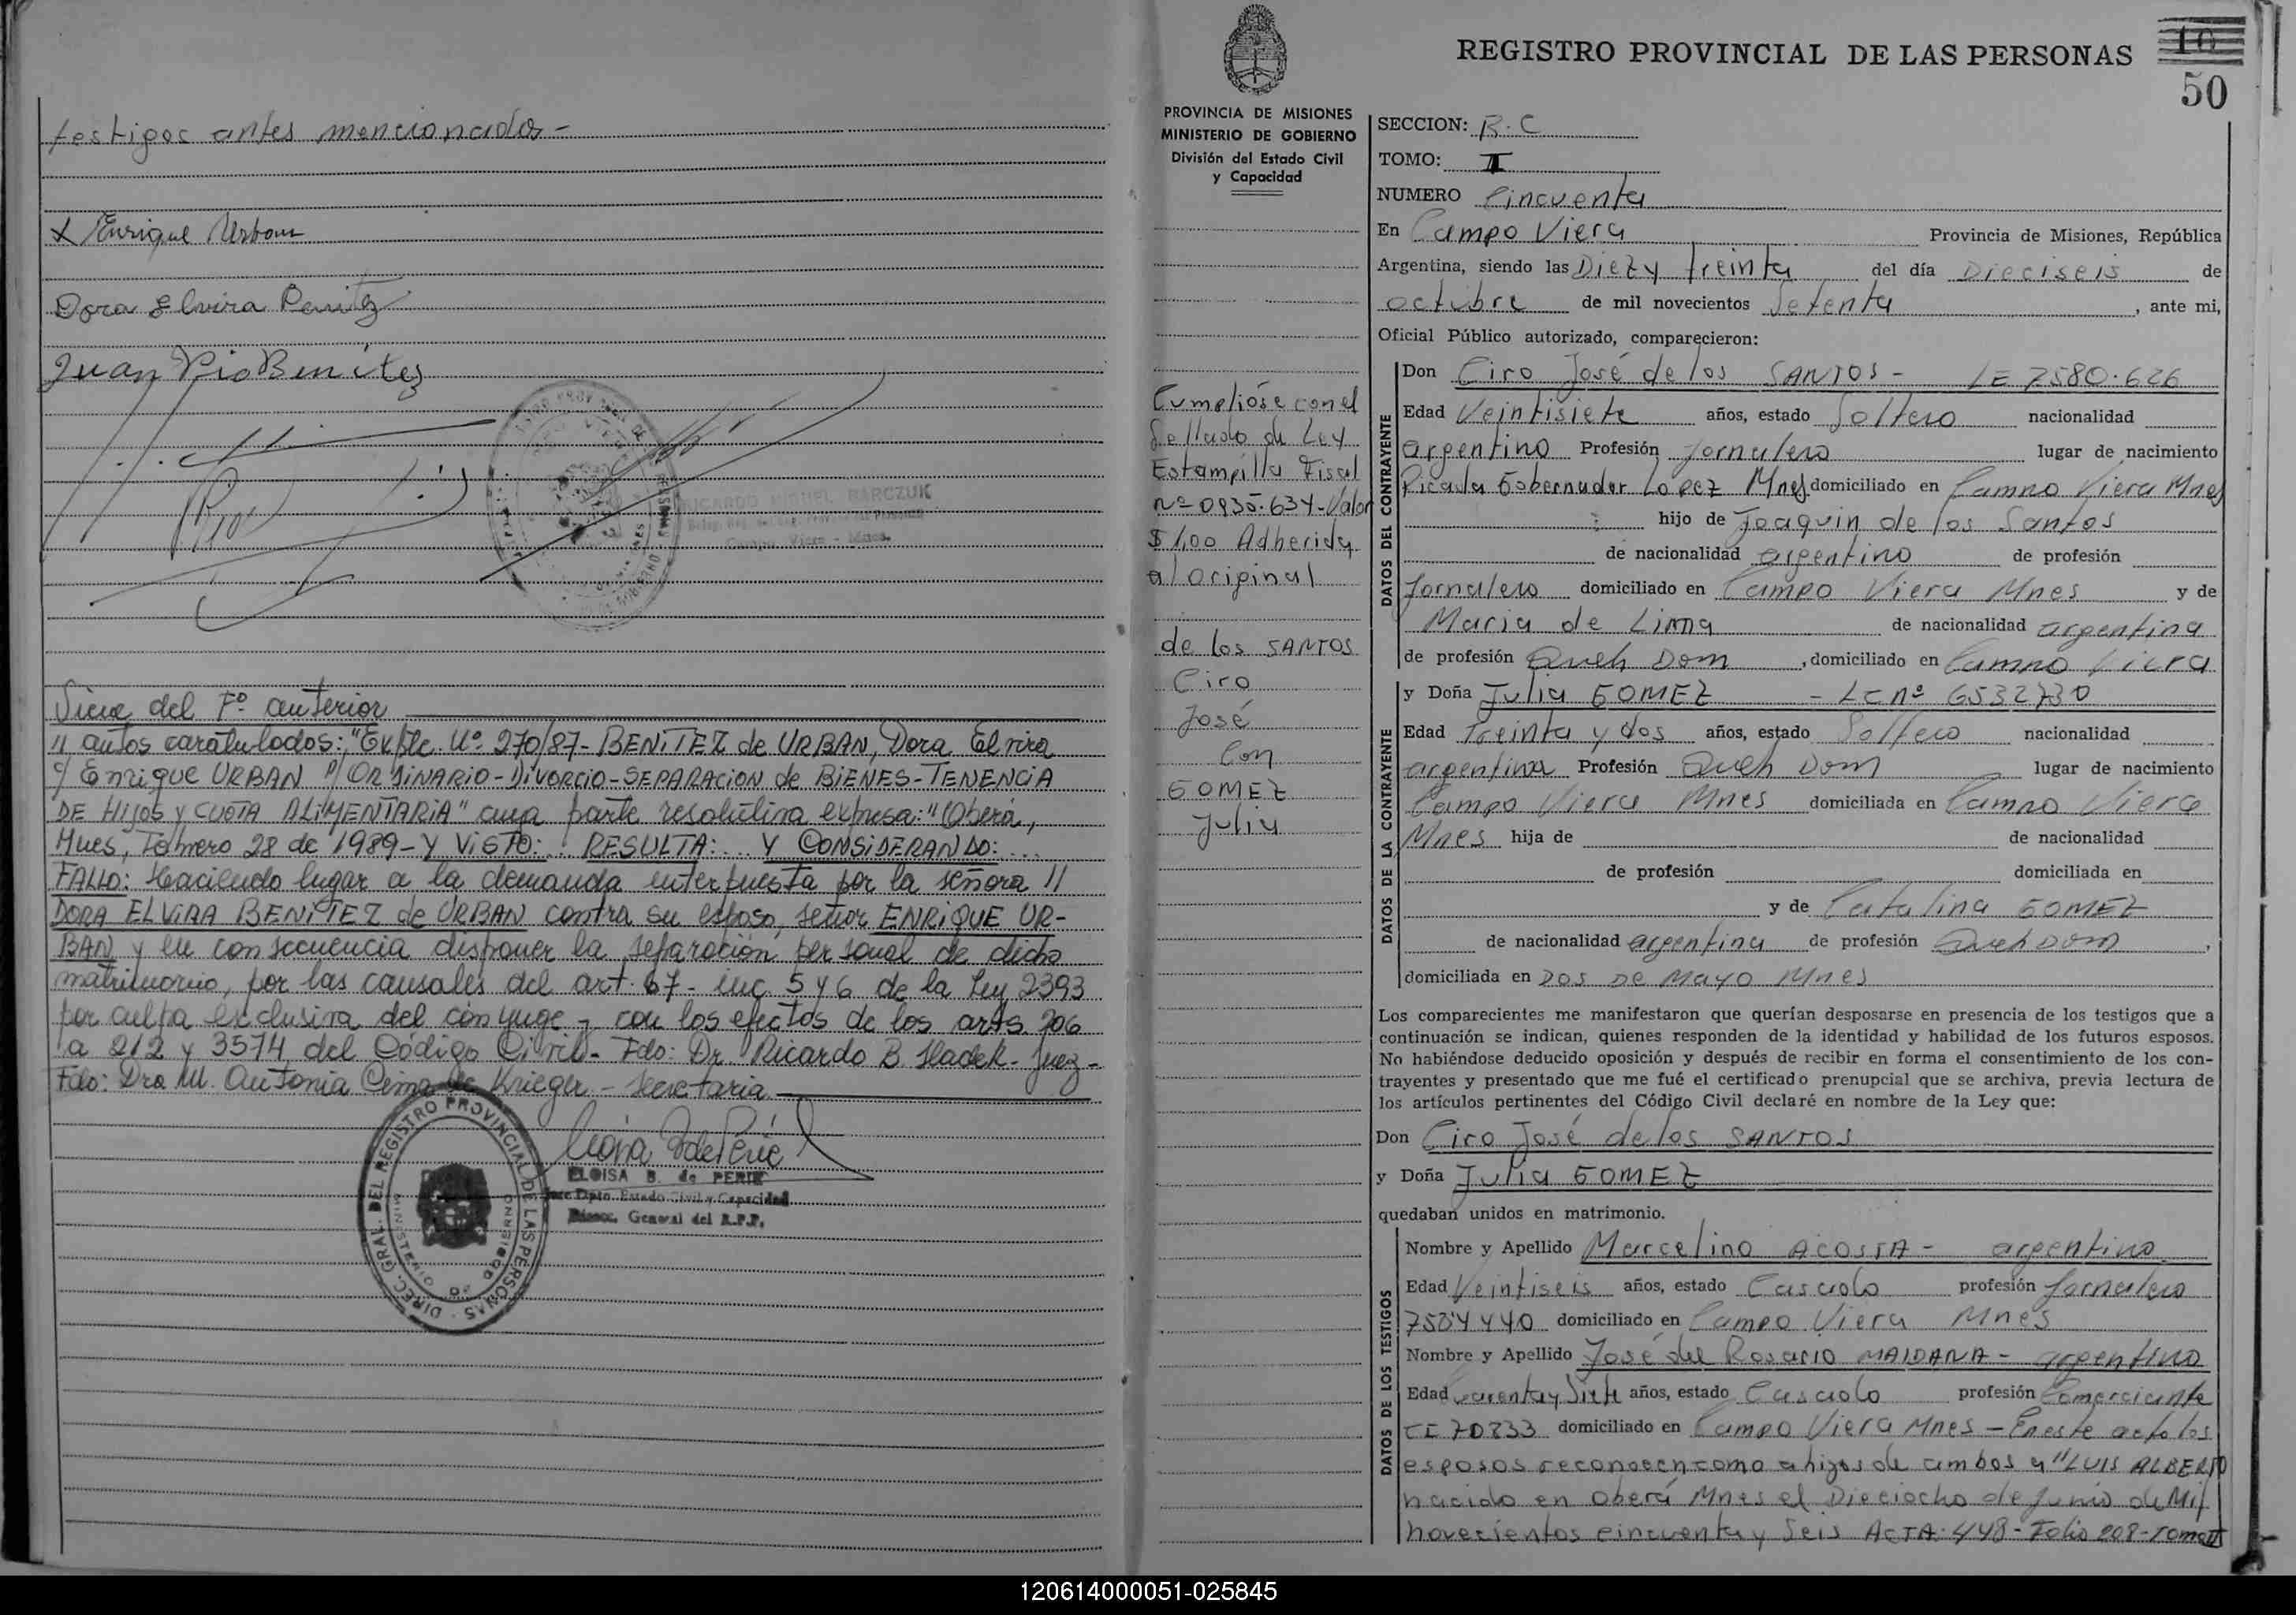 testigos antes mencionados -
X Enrique Urban
Dora Elvira Benitez
Juan Pio Benitez
RICARDO MIGUEL BARCZUK
Campo Viera - Mnes.
Viene del Fº anterior
// autos caratulados: "Expte. Nº 270/87 - BENITEZ de URBAN, Dora Elvira
c/ Enrique URBAN s/ ORDINARIO - DIVORCIO - SEPARACION de BIENES - TENENCIA
DE HIJOS y CUOTA ALIMENTARIA" cuya parte resolutiva expresa: "Oberá,
Mnes, Febrero 28 de 1989 - Y VISTO: ... RESULTA: ... Y CONSIDERANDO: ...
FALLO: Haciendo lugar a la demanda interpuesta por la señora //
DORA ELVIRA BENITEZ de URBAN contra su esposo, señor ENRIQUE UR-
BAN y en consecuencia disponer la separación personal de dicho
matrimonio, por las causales del art. 67 - inc. 5 y 6 de la Ley 2393
por culpa exclusiva del cónyuge, con los efectos de los arts. 206
a 212 y 3574 del Código Civil - Fdo: Dr. Ricardo B. Hadek - Juez -
Fdo: Dra M. Antonia Cima de Krieger - Secretaria
DIREC. GRAL. DEL REGISTRO PROVINCIAL DE LAS PERSONAS
MINISTERIO DE GOBIERNO
ELOISA B. de PERIE
Jefe Dpto. Estado Civil y Capacidad
Direcc. General del R.P.P.
REGISTRO PROVINCIAL DE LAS PERSONAS
10
50
PROVINCIA DE MISIONES
MINISTERIO DE GOBIERNO
División del Estado Civil
y Capacidad
Cumplióse con el
Sellado de Ley
Estampilla Fiscal
Nº 0935.634 - Valor
$ 1,00 Adherida
al original
de los SANTOS
Ciro
José
con
GOMEZ
Julia
SECCION: R.C
TOMO: I
NUMERO Cincuenta
En Campo Viera Provincia de Misiones, República
Argentina, siendo las Diez y treinta del día Dieciseis de
octubre de mil novecientos Setenta, ante mi,
Oficial Público autorizado, comparecieron:
DATOS DEL CONTRAYENTE
Don Ciro José de los SANTOS - LE 7580.626
Edad Veintisiete años, estado Soltero nacionalidad
argentino Profesión Jornalero lugar de nacimiento
Picada Gobernador Lopez Mnes domiciliado en Campo Viera Mnes
hijo de Joaquin de los Santos
de nacionalidad argentino de profesión
Jornalero domiciliado en Campo Viera Mnes y de
Maria de Lima de nacionalidad argentina
de profesión Queh Dom, domiciliado en Campo Viera
DATOS DE LA CONTRAYENTE
y Doña Julia GOMEZ - LC nº 6532730
Edad Treinta y dos años, estado Soltero nacionalidad
argentina Profesión Queh Dom lugar de nacimiento
Campo Viera Mnes domiciliada en Campo Viera
Mnes hija de de nacionalidad
de profesión domiciliada en
y de Catalina GOMEZ
de nacionalidad argentina de profesión Queh Dom,
domiciliada en DOS DE MAYO Mnes
Los comparecientes me manifestaron que querían desposarse en presencia de los testigos que a
continuación se indican, quienes responden de la identidad y habilidad de los futuros esposos.
No habiéndose deducido oposición y después de recibir en forma el consentimiento de los con-
trayentes y presentado que me fué el certificado prenupcial que se archiva, previa lectura de
los artículos pertinentes del Código Civil declaré en nombre de la Ley que:
Don Ciro José de los SANTOS
y Doña Julia GOMEZ
quedaban unidos en matrimonio.
DATOS DE LOS TESTIGOS
Nombre y Apellido Marcelino ACOSTA - argentino
Edad Veintiseis años, estado Casado profesión Jornalero
7584440 domiciliado en Campo Viera Mnes
Nombre y Apellido José del Rosario MAIDANA - argentino
Edad Cuarenta y Siete años, estado Casado profesión Comerciante
CI 70833 domiciliado en Campo Viera Mnes - En este acto los
esposos reconocen como a hijos de ambos a "LUIS ALBERTO
nacido en Oberá Mnes el Dieciocho de Junio de Mil
novecientos cincuenta y Seis ACTA: 448 - Folio 208 - Tomo II
120614000051-025845